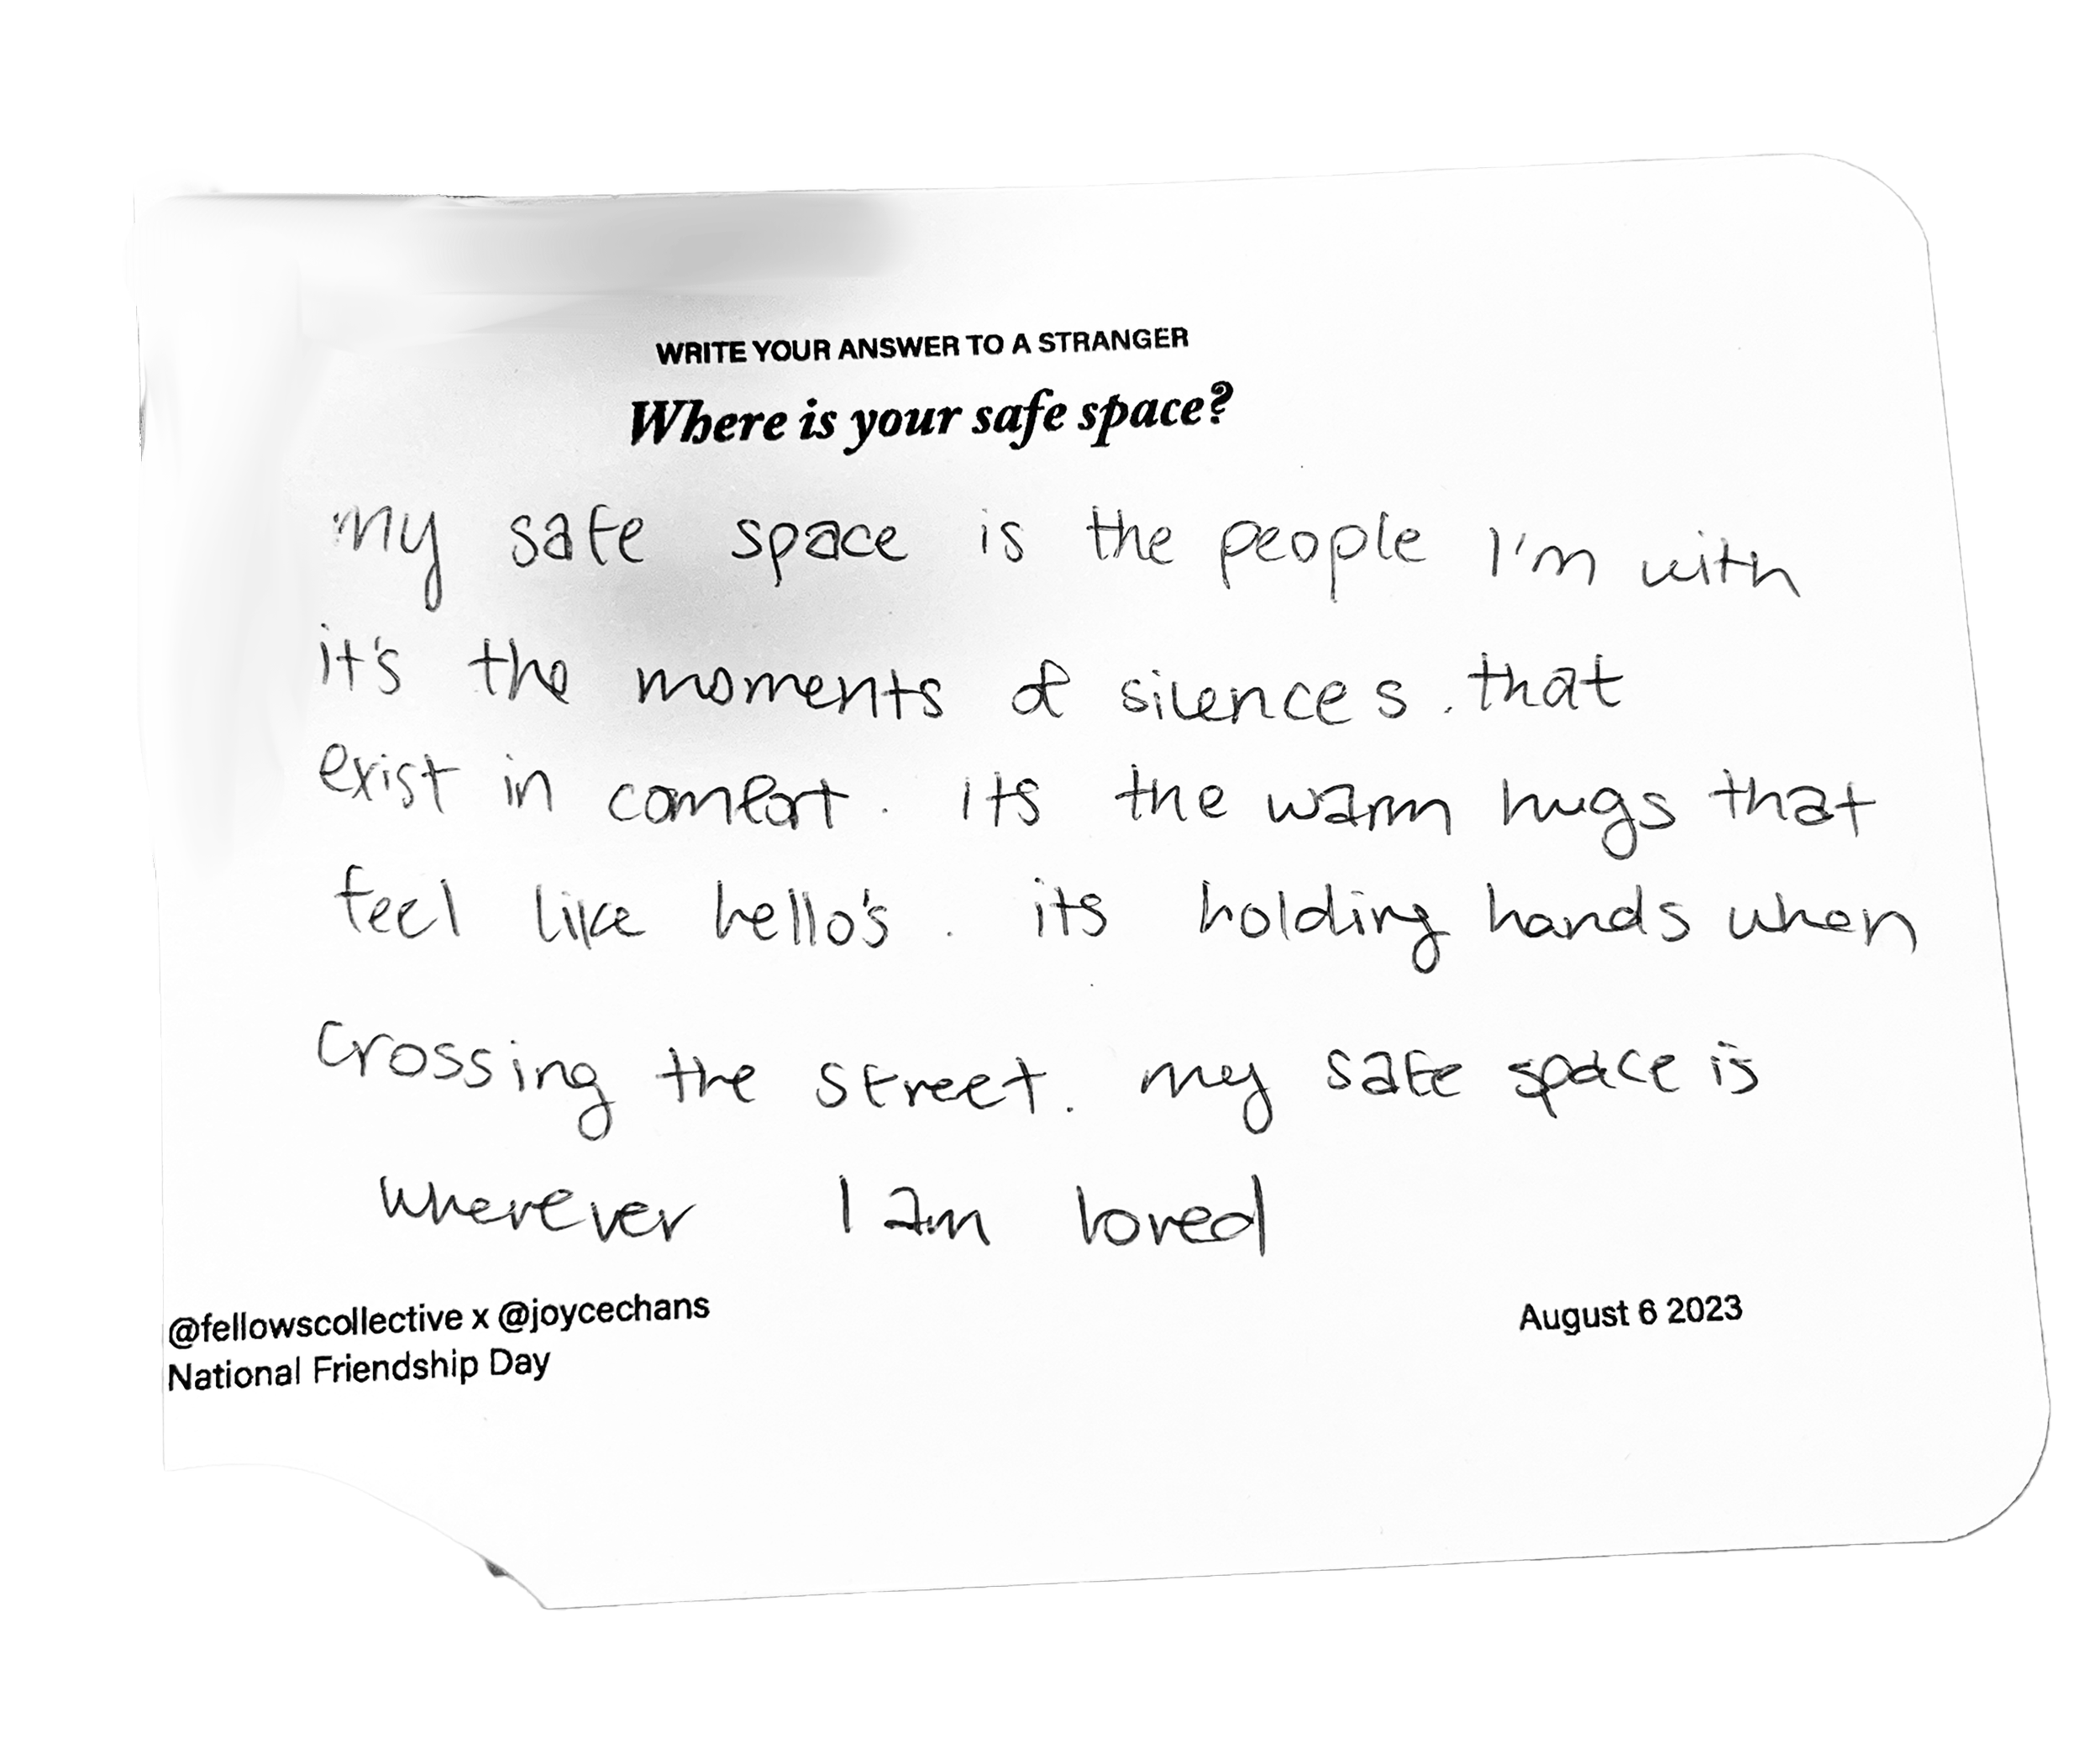 WRITE YOUR ANSWER TO A STRANGER
Where is your safe space?
my safe space is the people I'm with
it's the moments of silences. that
exist in comfort. its the warm hugs that
feel like hello's. its holding hands when
crossing the street. my safe space is
wherever I am loved
@fellowscollective x @joycechans
August 6 2023
National Friendship Day